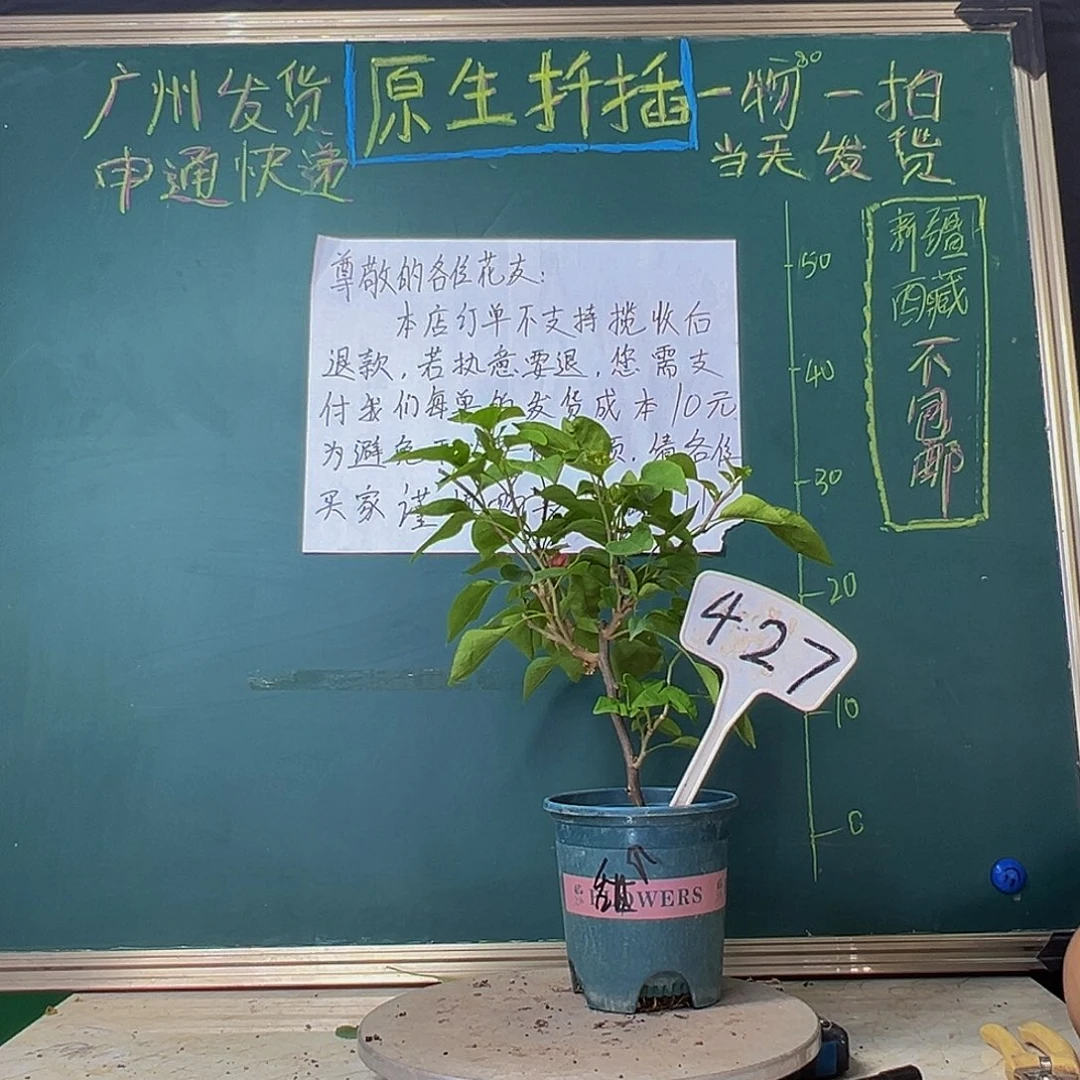 广州发货
原生扦插
一物一拍
申通快递
当天发货
尊敬的各位花友:
本店订单不支持揽收后
退款,若执意要退,您需支
付我们每单的发货成本10元
为避免
请各位
买家谨
新疆
西藏
不
包
邮
50
40
30
20
10
0
4.27
FLOWERS